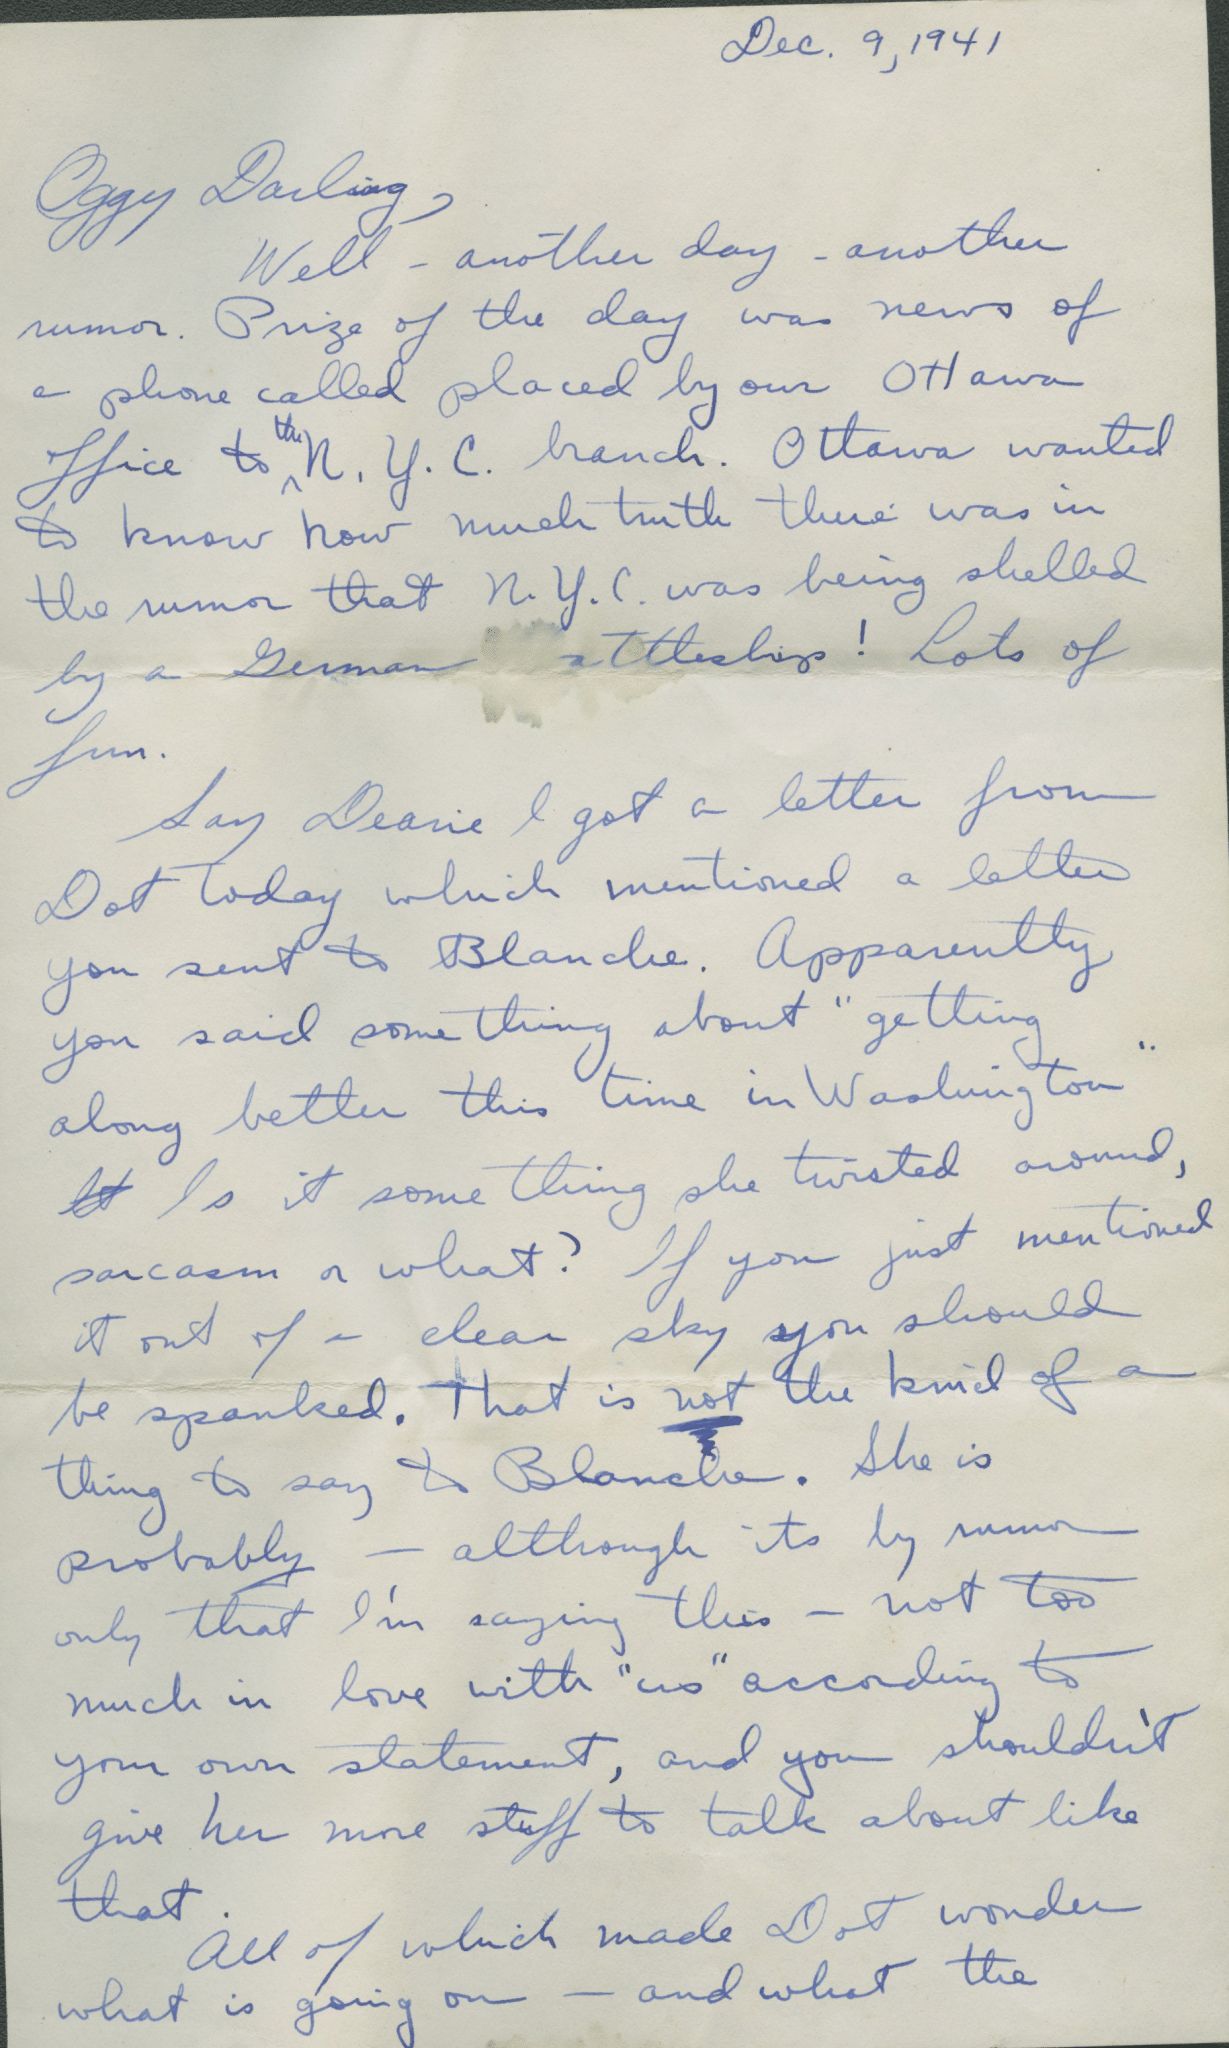 Dec. 9, 1941
Oggy Darling,
Well - another day - another
rumor. Prize of the day was news of
a phone called placed by our Ottawa
office to the N.Y.C. branch. Ottawa wanted
to know how much truth there was in
the rumor that N.Y.C. was being shelled
by a German attleships! Lots of
fun.
Say Dearie I got a letter from
Dot today which mentioned a letter
you sent to Blanche. Apparently
you said something about "getting
along better this time in Washington"
It Is it something she twisted around,
sarcasm or what? If you just mentioned
it out of a clear sky you should
be spanked. That is not the kind of a
thing to say to Blanche. She is
probably — although its by rumor
only that I'm saying this — not too
much in love with "us" according to
your own statement, and you shouldn't
give her more stuff to talk about like
that.
All of which made Dot wonder
what is going on — and what the